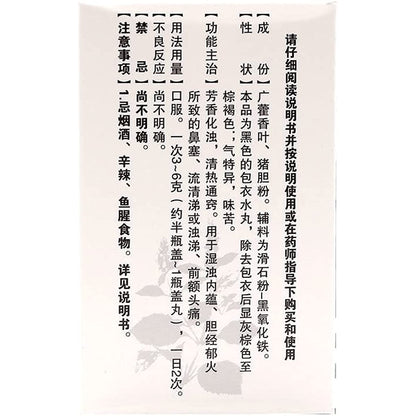 请仔细阅读说明书并按说明使用或在药师指导下购买和使用
【成　份】广藿香叶、猪胆粉。辅料为滑石粉-黑氧化铁。
【性　状】本品为黑色的包衣水丸，除去包衣后显灰棕色至
棕褐色；气特异，味苦。
【功能主治】芳香化浊，清热通窍。用于湿浊内蕴、胆经郁火
所致的鼻塞、流清涕或浊涕、前额头痛。
【用法用量】口服。一次3~6克（约半瓶盖~1瓶盖丸），一日2次。
【不良反应】尚不明确。
【禁　忌】尚不明确。
【注意事项】1.忌烟酒、辛辣、鱼腥食物。详见说明书。